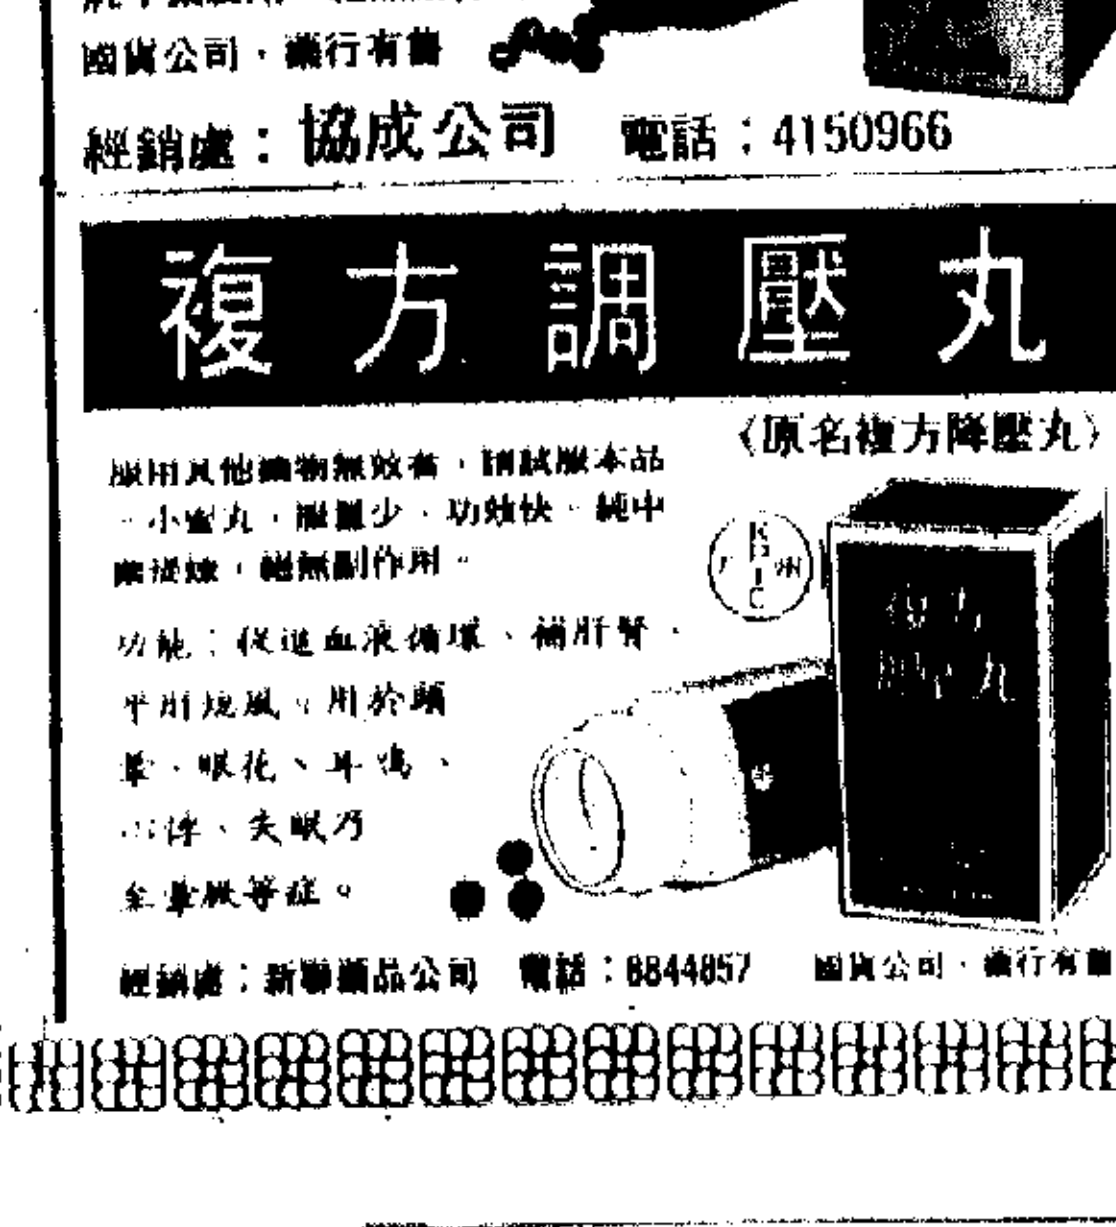 國貨公司·藥行有售
經銷處：協成公司　電話：4150966
複方調壓丸
〈原名複方降壓丸〉
服用其他藥物無效者，請試服本品
。小蜜丸，服量少，功效快。純中
藥提煉，絕無副作用。
功能：促進血液循環、補肝腎、
平肝熄風。用於頭
暈、眼花、耳鳴、
心悸、失眠乃
至暈厥等症。
K
廣 P 州
I
C
複方
調壓丸
經銷處：新聯藥品公司　電話：8844857　國貨公司·藥行有售